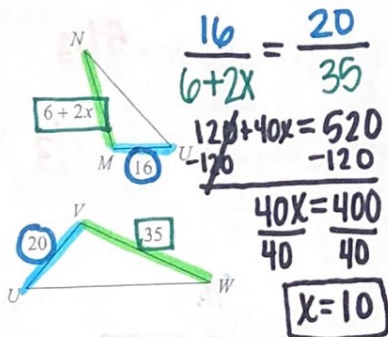 N
6 + 2x
M
16
U
V
20
35
U
W
16/6+2x = 20/35
120+40x = 520
-120 -120
40x = 400
40 40
x = 10